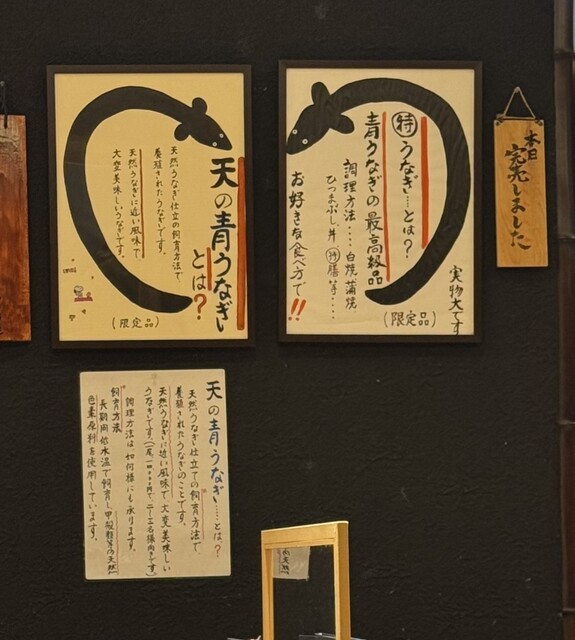 本日
完売しました
㊕うなぎ……とは?
青うなぎの最高級品
調理方法・・・・白焼蒲焼
ひつまぶし、丼、㊕膳等・・・・
お好きな食べ方で!!
実物大です
(限定品)
天の青うなぎ
とは?
天然うなぎ仕立の飼育方法で
養殖されたうなぎです。
天然うなぎに近い風味で、
大変美味しいうなぎです。
(限定品)
天の青うなぎ……とは?
天然うなぎ仕立ての飼育方法で、
養殖されたうなぎのことです。
天然うなぎに近い風味で大変美味しい
うなぎです。
調理方法は如何様にも承ります。
飼育方法
長期間低水温で飼育し、甲殻類等の天然
色素原料を使用しています。